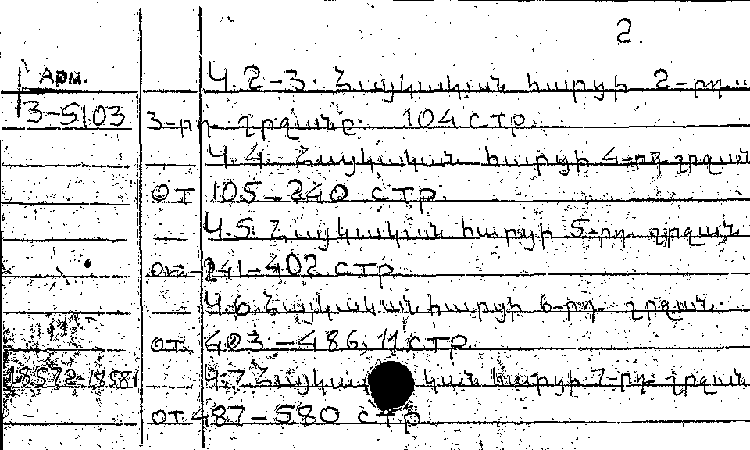 2.
Арм.
3-5103
Ч. 2-3. Հայկական հարցի 2-րդ
3-րդ շրջանը. 104 стр.
Ч. 4. Հայկական հարցի 4-րդ շրջան
от 105-240 стр.
Ч. 5. Հայկական հարցի 5-րդ շրջան
от 241-402 стр.
Ч. 6. Հայկական հարցի 6-րդ շրջան.
от 403-486, 11 стр.
Ч. 7. Հայկական հարցի 7-րդ շրջան
от 487-580 стр